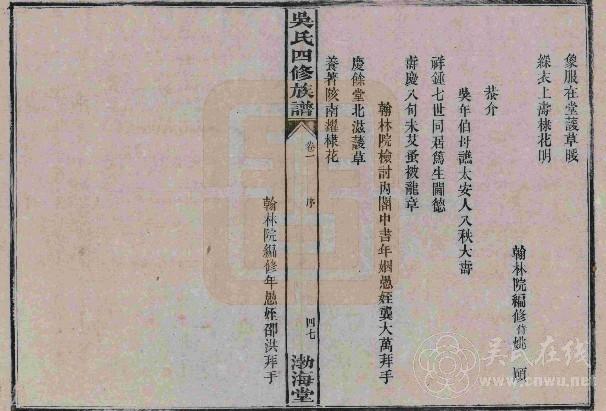 象服在堂諼草暖
綵衣上壽棣花明
翰林院編修偖姚頤
恭介
吳年伯母譙太安人八秩大壽
祥鍾七世同居篤生閫德
壽慶八旬未艾蚤被龍章
翰林院檢討內閣中書年姻愚姪龔大萬拜手
慶餘堂北滋諼草
養著陔南耀棣花
翰林院編修年愚姪邵洪拜手
吳氏四修族譜
卷一
序
四七
渤海堂
吴氏在线
www.cnwu.net